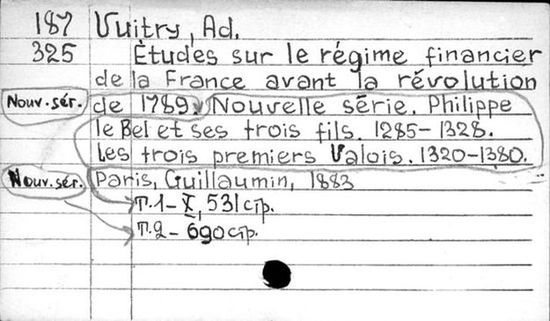 187 Vuitry, Ad.
325 Études sur le régime financier
de la France avant la révolution
Nouv. sér. de 1789. Nouvelle série. Philippe
le Bel et ses trois fils. 1285-1328.
Les trois premiers Valois. 1320-1380.
Nouv. sér. Paris, Guillaumin, 1883
Т.1-X, 531 стр.
Т.2- 690 стр.